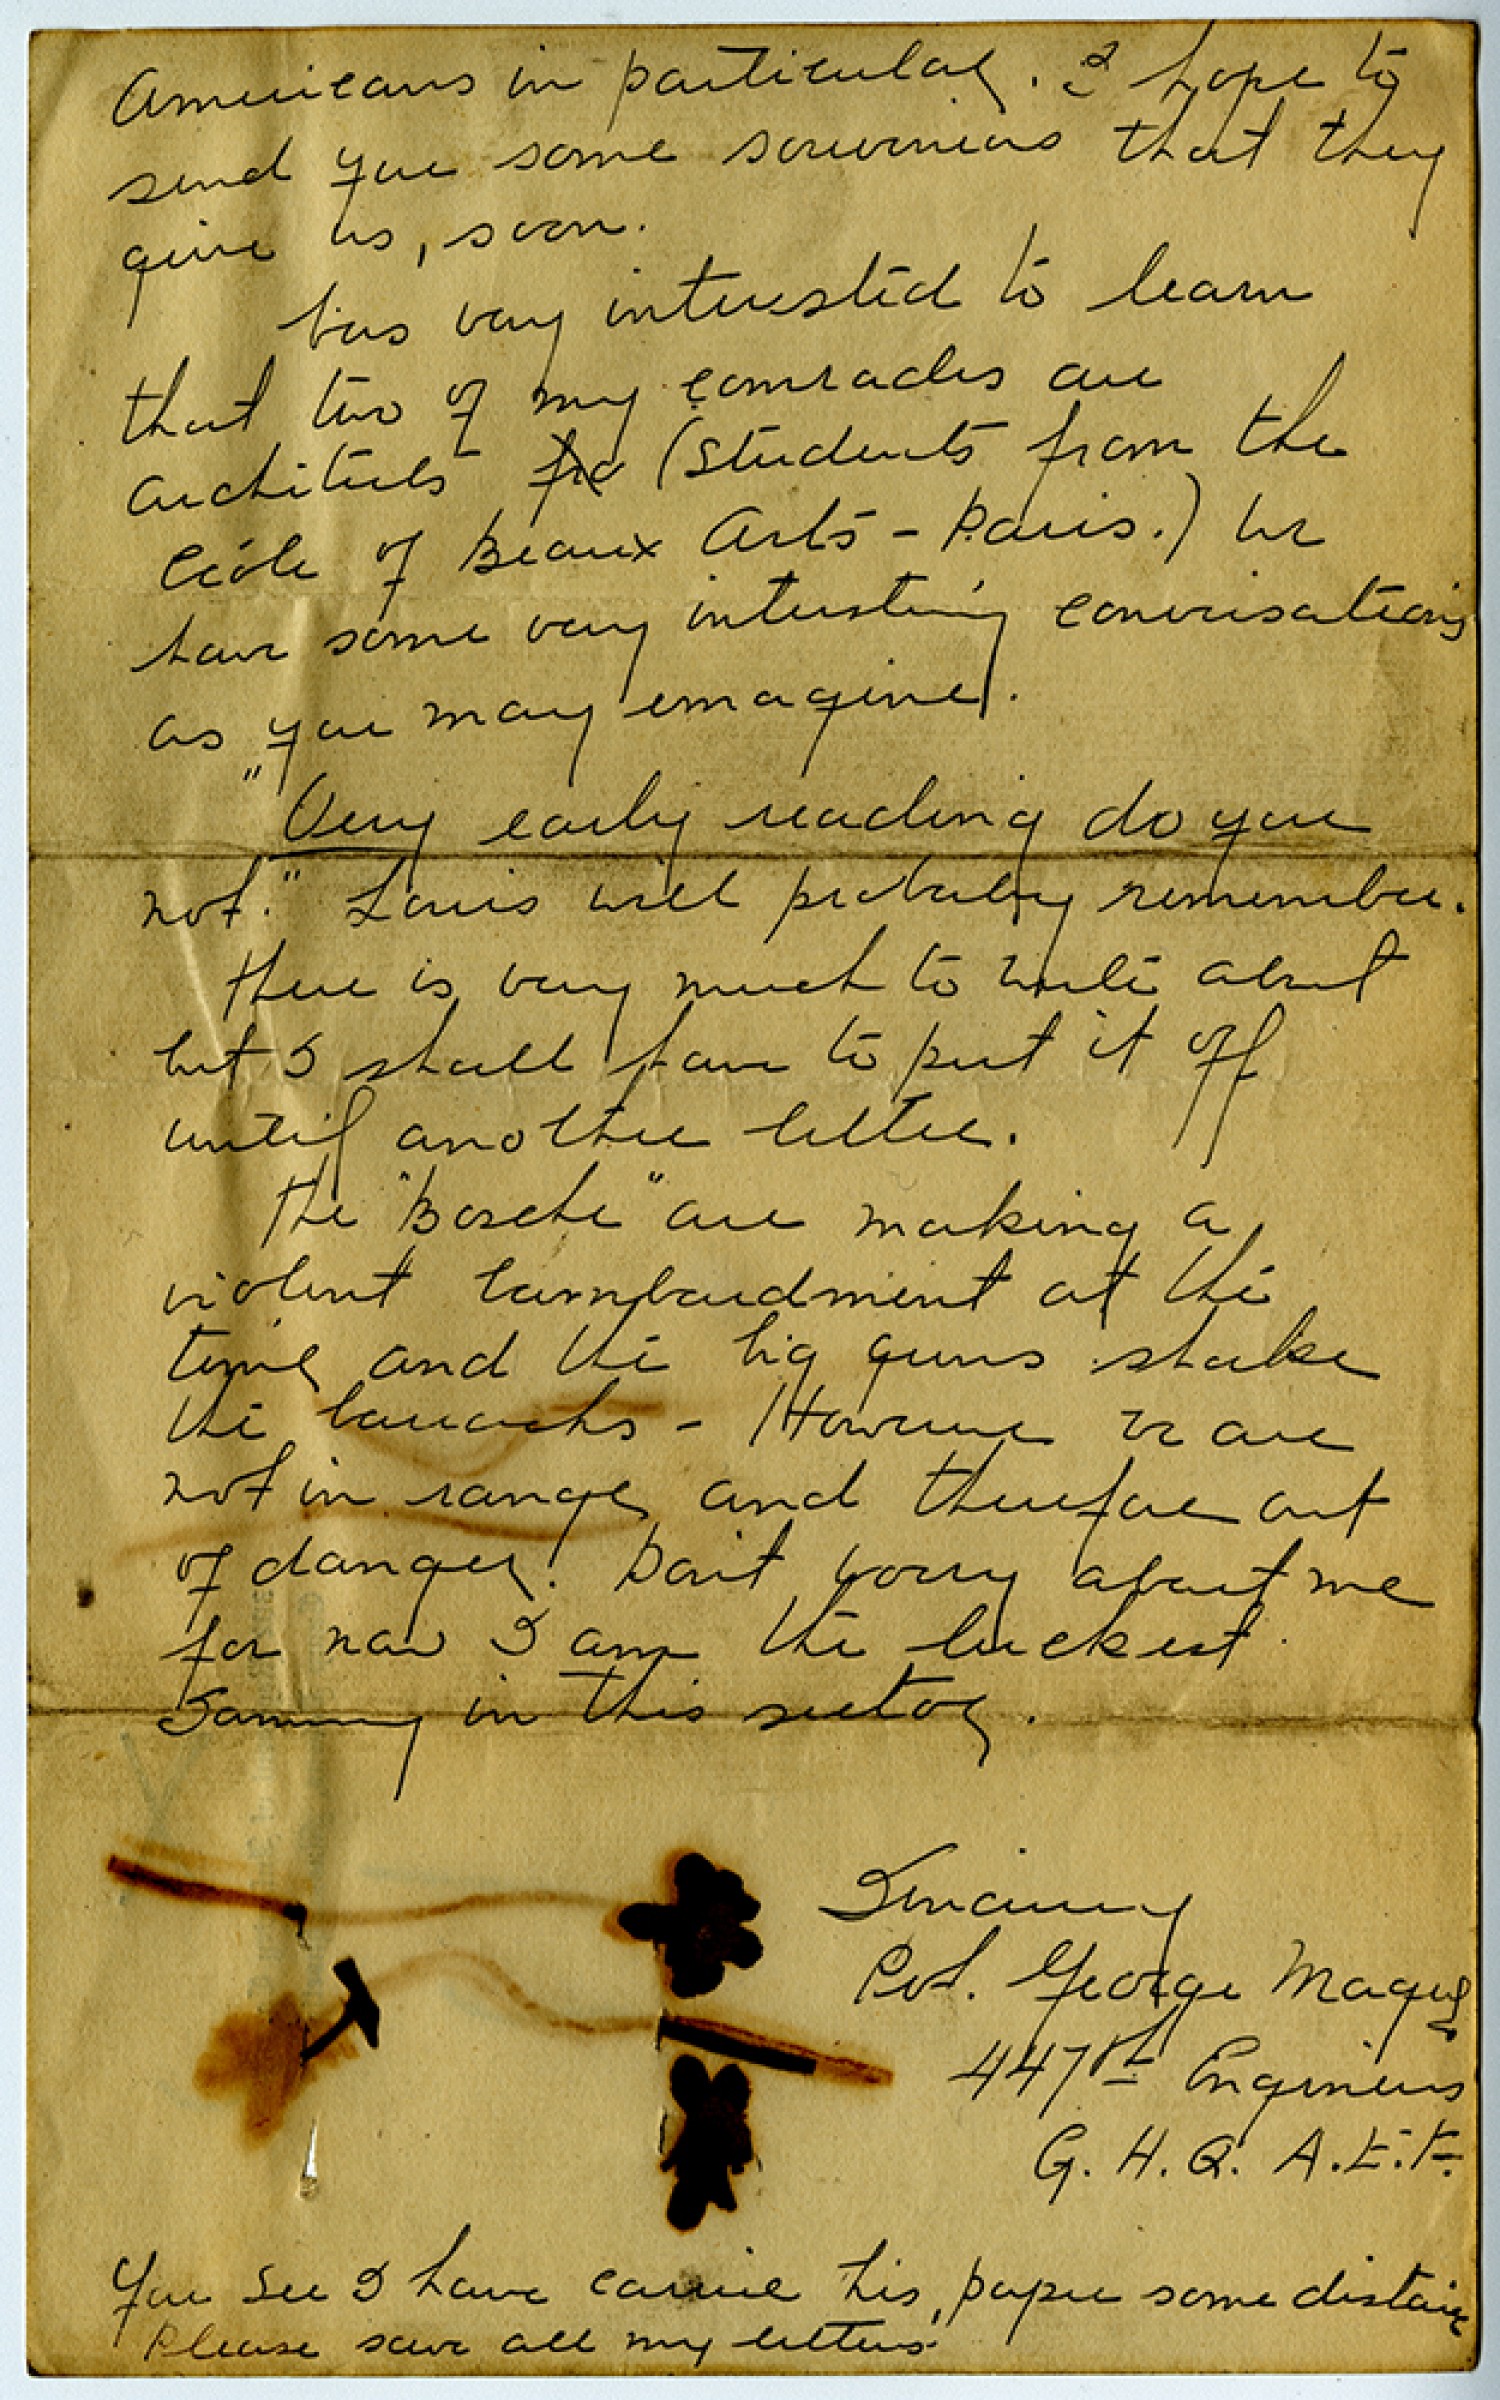 Americans in particular. I hope to
send you some souveniers that they
give us, soon.
Was very interested to learn
that two of my comrades are
architects fro (students from the
École of Beaux Arts - Paris.) We
have some very interesting conversations
as you may emagine.
"Very early reading do you
not." Louis will probably remember.
There is very much to write about
but I shall have to put it off
until another letter.
The "Bosche" are making a
violent bambardment at the
time and the big guns shake
the barracks - However we are
not in range and therefore out
of danger. Don't worry about me
for now I am the luckest
Sammy in this sector.
Sincerely
Pvt. George
447th Engineers
G. H. Q. A.E.F.
You see I have carrie this paper some distance
Please save all my letters